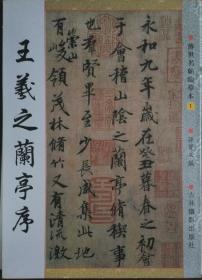 王羲之蘭亭序
傳世名帖臨摹本 1
吉林攝影出版社
永和九年歲在癸丑暮春之初會
于會稽山陰之蘭亭脩稧事
也羣賢畢至少長咸集此地
有崇山
峻領茂林脩竹又有清流激